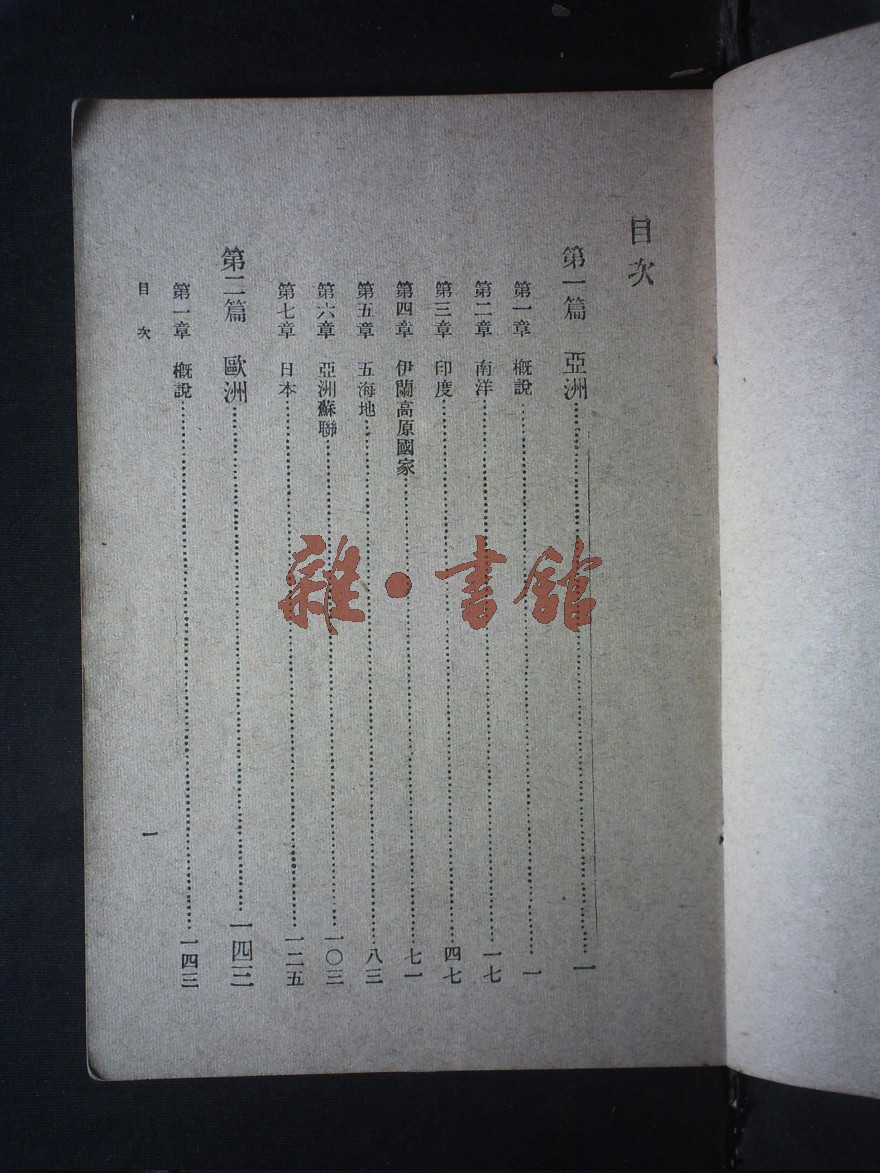 目次
第一篇 亞洲……一
第一章 概說……一
第二章 南洋……一七
第三章 印度……四七
第四章 伊蘭高原國家……七一
第五章 五海地……八三
第六章 亞洲蘇聯……一〇三
第七章 日本……一二五
第二篇 歐洲……一四三
第一章 概說……一四三
目次 一
雜·書館